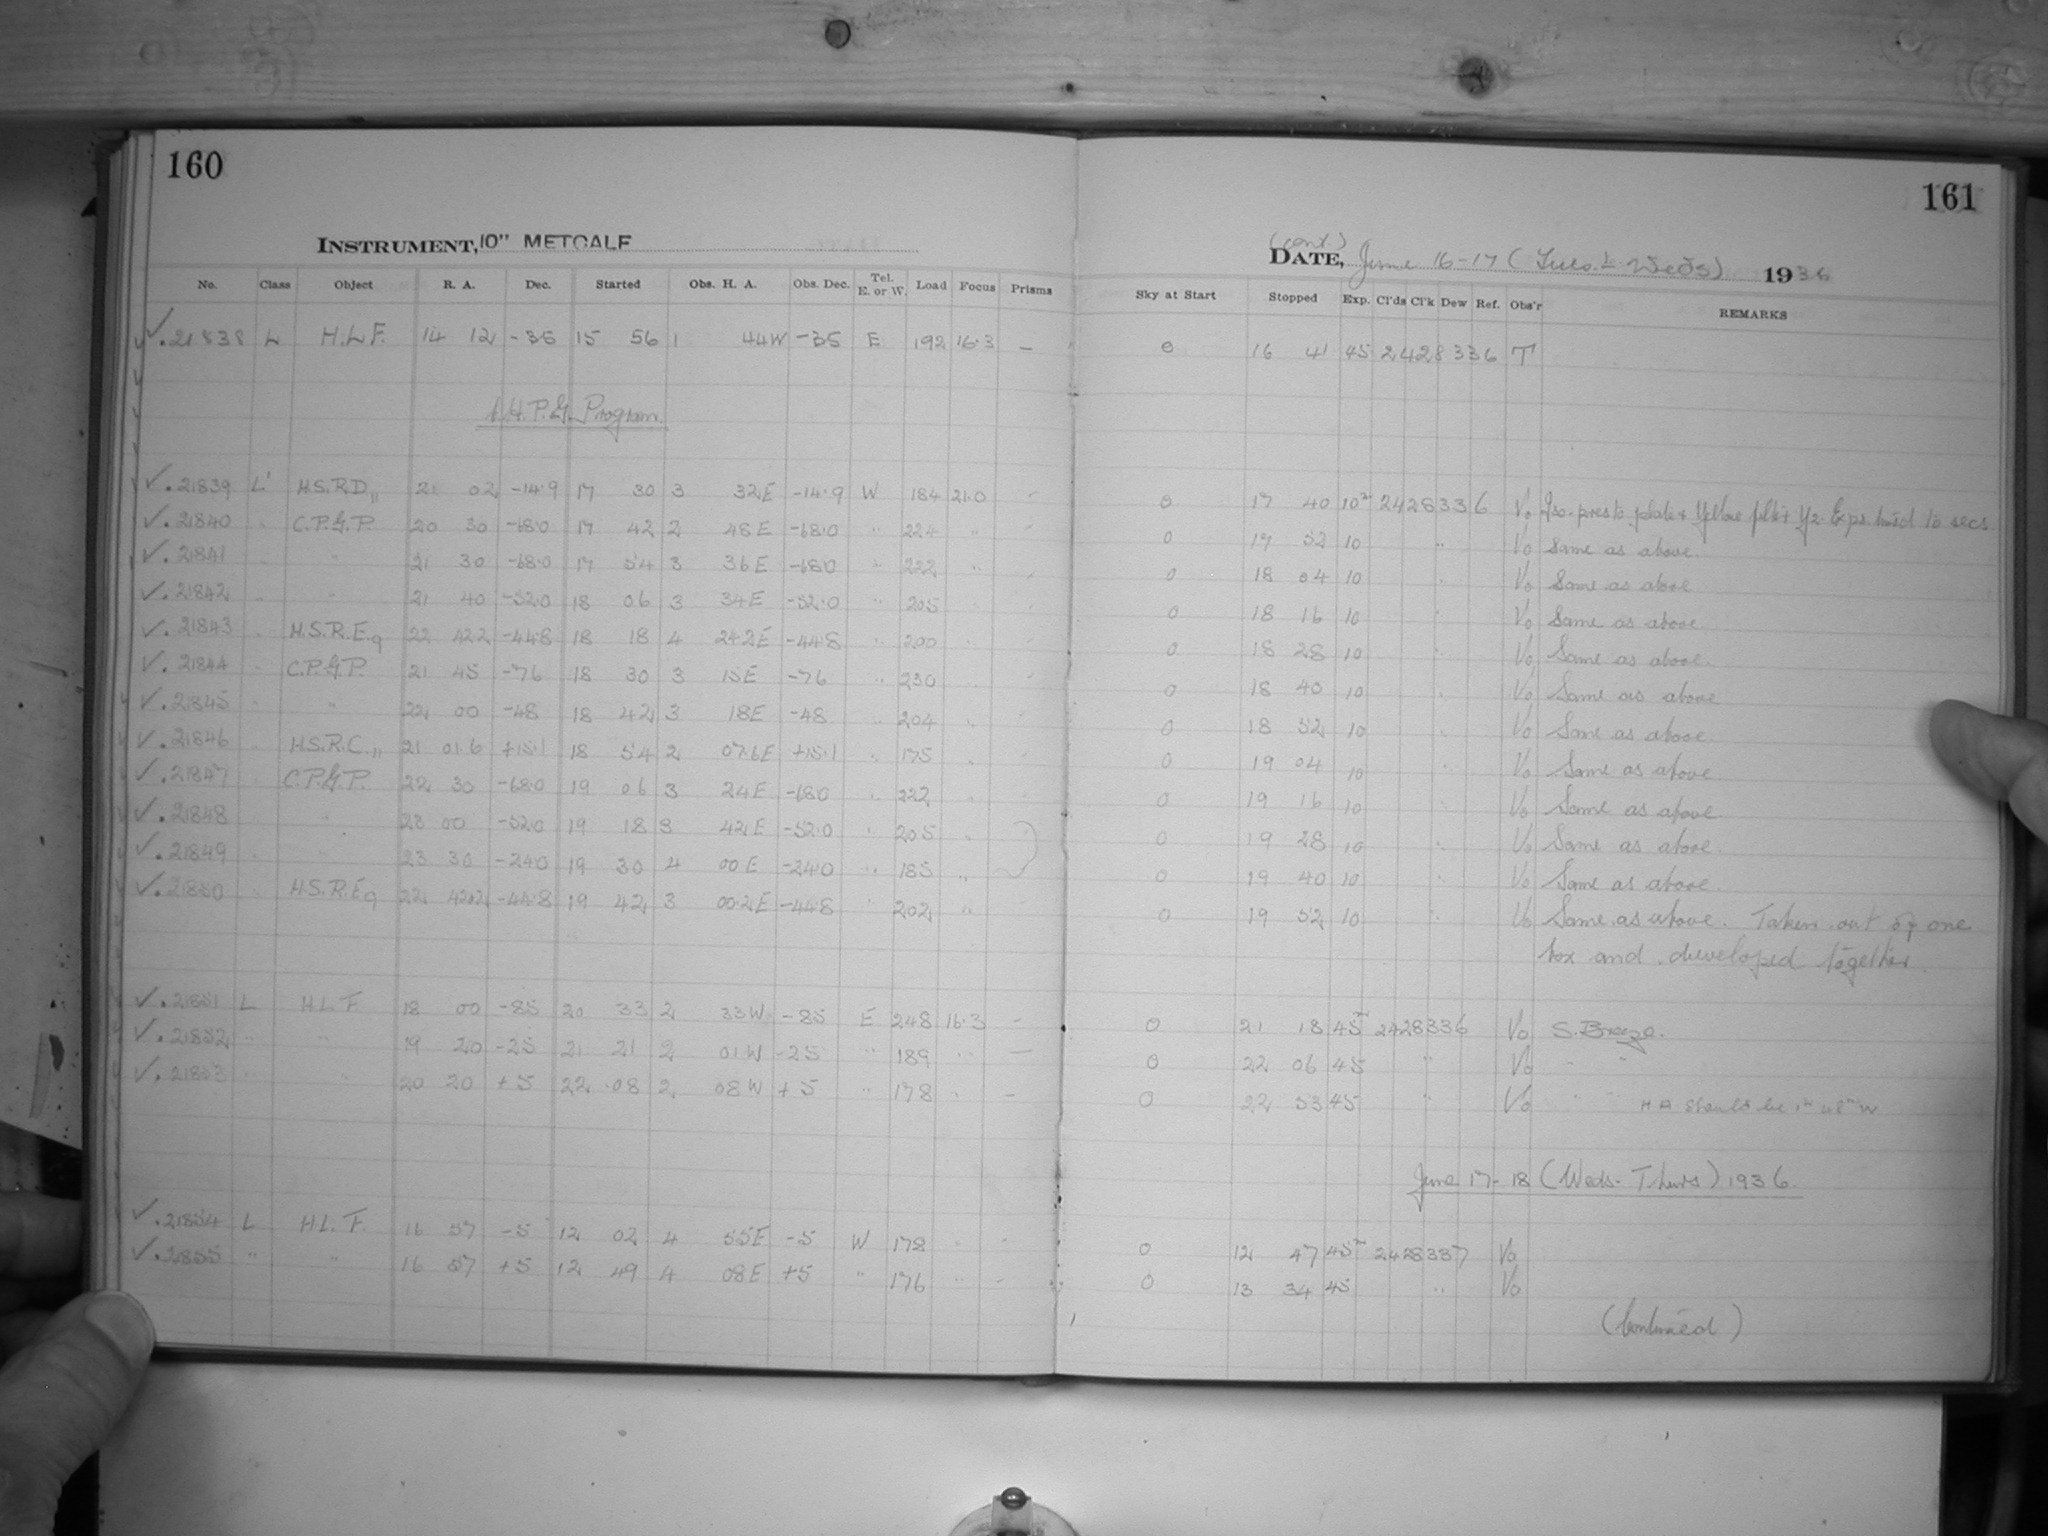 160
INSTRUMENT, 10" METCALF
No. Class Object R. A. Dec. Started Obs. H. A. Obs. Dec. Tel. E. or W. Load Focus Prisms
✓.21838 L H.L.F. 14 12 -35 15 56 1 44W -35 E 192 16.3 —
P.G. Program
✓.21839 L' H.S.R.D,, 21 02 -14.9 17 30 3 32E -14.9 W 184 21.0
✓.21840 C.P.G.P. 20 30 -68.0 17 42 2 48E -68.0 " 224 "
✓.21841 " 21 30 -68.0 17 54 3 36E -68.0 " 222 "
✓.21842 " 21 40 -52.0 18 06 3 34E -52.0 " 205 "
✓.21843 H.S.R.E.9 22 42.2 -44.8 18 18 4 24.2E -44.8 " 200 "
✓.21844 C.P.G.P. 21 45 -76 18 30 3 15E -76 " 230 "
✓.21845 " 22 00 -48 18 42 3 18E -48 " 204 "
✓.21846 H.S.R.C.,, 21 01.6 +15.1 18 54 2 07.6E +15.1 " 175 "
✓.21847 C.P.G.P. 22 30 -68.0 19 06 3 24E -68.0 " 222 "
✓.21848 " 23 00 -52.0 19 18 3 42E -52.0 " 205 "
✓.21849 " 23 30 -24.0 19 30 4 00E -24.0 " 185 "
✓.21850 H.S.R.E9 22 42.2 -44.8 19 42 3 00.2E -44.8 " 202 "
✓.21851 L H.L.F. 18 00 -85 20 33 2 33W -85 E 248 16.3 —
✓.21852 " " 19 20 -25 21 21 2 01W -25 " 189 " —
✓.21853 " " 20 20 +5 22 08 2 08W +5 " 178 " —
✓.21854 L H.L.F. 16 57 -5 12 02 4 55E -5 W 178 " "
✓.21855 " " 16 57 +5 12 49 4 08E +5 " 176 " —
161
(cont.)
DATE, June 16-17 (Tues. & Weds) 1936
Sky at Start Stopped Exp. Cl'ds Cl'k Dew Ref. Obs'r REMARKS
0 16 41 45 2428336 T
0 17 40 10m 2428336 Vo Iso-presto plate & Yellow filter Y2 Exps timed to secs
0 17 52 10 " Vo Same as above.
0 18 04 10 " Vo Same as above
0 18 16 10 " Vo Same as above
0 18 28 10 " Vo Same as above.
0 18 40 10 " Vo Same as above
0 18 52 10 " Vo Same as above.
0 19 04 10 " Vo Same as above
0 19 16 10 " Vo Same as above.
0 19 28 10 " Vo Same as above.
0 19 40 10 " Vo Same as above.
0 19 52 10 " Vo Same as above. Taken out of one
box and developed together.
0 21 18 45m 2428336 Vo S. Breeze.
0 22 06 45 " Vo " "
0 22 53 45 " Vo " " HA should be 1h 48m W
June 17-18 (Weds-Thurs) 1936.
0 12 47 45m 2428337 Vo
0 13 34 45 " Vo
(Continued)